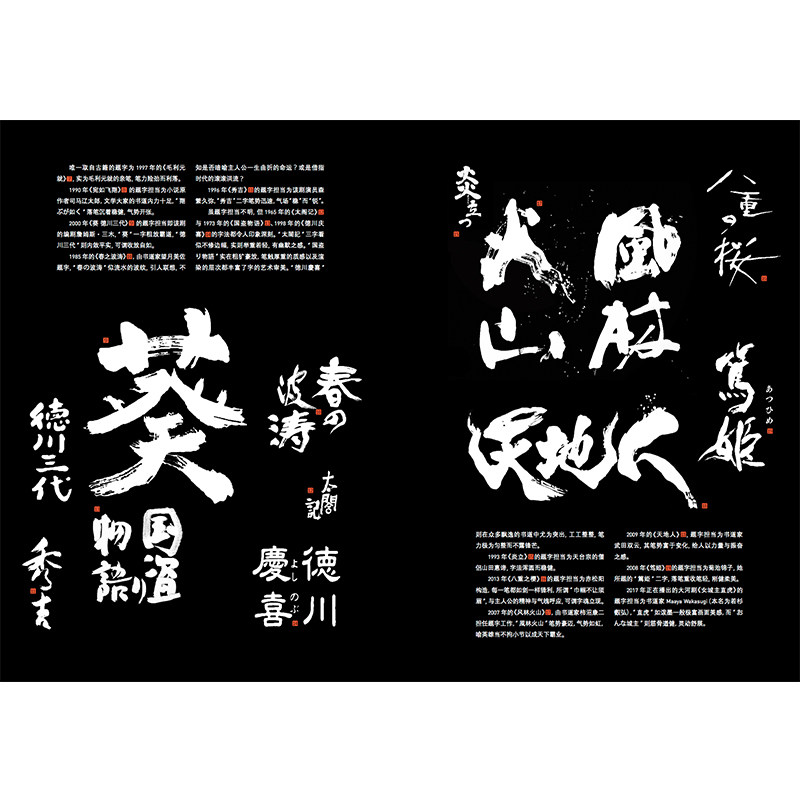 唯一取自古籍的题字为 1997 年的《毛利元
就》，实为毛利元就的亲笔，笔力险劲而利落。
1990 年《宛如飞翔》的题字担当为小说原
作者司马辽太郎，文学大家的书道内力十足，“翔
ぶが如く”落笔沉着稳健，气势开张。
2000 年《葵 德川三代》的题字担当即该剧
的编剧詹姆斯·三木，“葵”一字粗放霸道，“德
川三代”则内敛平实，可谓收放自如。
1985 年的《春之波涛》，由书道家望月美佐
题字，“春の波涛”似流水的波纹，引人联想，不
知是否暗喻主人公一生曲折的命运？或是借指
时代的滚滚洪流？
1996 年《秀吉》的题字担当为该剧演员森
繁久弥，“秀吉”二字笔势迅速，气场“稳”而“锐”。
虽题字担当不明，但 1965 年的《太阁记》
与 1973 年的《国盗物语》、1998 年的《德川庆
喜》的字法都令人印象深刻。“太閤記”三字看
似不修边幅，实则举重若轻，有幽默之感。“国盗
り物語”实在粗犷豪放，笔触厚重的质感以及渲
染的层次都丰富了字的艺术审美。“徳川慶喜”
葵
徳川三代
秀吉
国盗り
物語
春の
波涛
太閤
記
徳川
慶喜
よし のぶ
炎立つ
風林
火山
八重
の桜
篤姫
あつひめ
天地人
则在众多飘逸的书道中尤为突出，工工整整，笔
力极为匀整而不露锋芒。
1993 年《炎立》的题字担当为天台宗的僧
侣山田惠谛，字法浑圆而稳健。
2013 年《八重之樱》的题字担当为赤松阳
构造，每一笔都如剑一样锋利，所谓“巾帼不让须
眉”，与主人公的精神与气魄呼应，可谓字魂立现。
2007 年的《风林火山》，由书道家柿沼康二
担任题字工作，“風林火山”笔势豪迈，气势如虹，
喻英雄当不拘小节以成天下霸业。
2009 年的《天地人》，题字担当为书道家
武田双云，其笔势富于变化，给人以力量与振奋
之感。
2008 年《笃姬》的题字担当为菊池锦子，她
所题的“篤姫”二字，落笔重收笔轻，刚健柔美。
2017 年正在播出的大河剧《女城主直虎》的
题字担当为书道家 Maaya Wakasugi（本名为若杉
毅弘），“直虎”如汉墨一般极富画面美感，而“お
んな城主”则筋骨道健，灵动舒展。